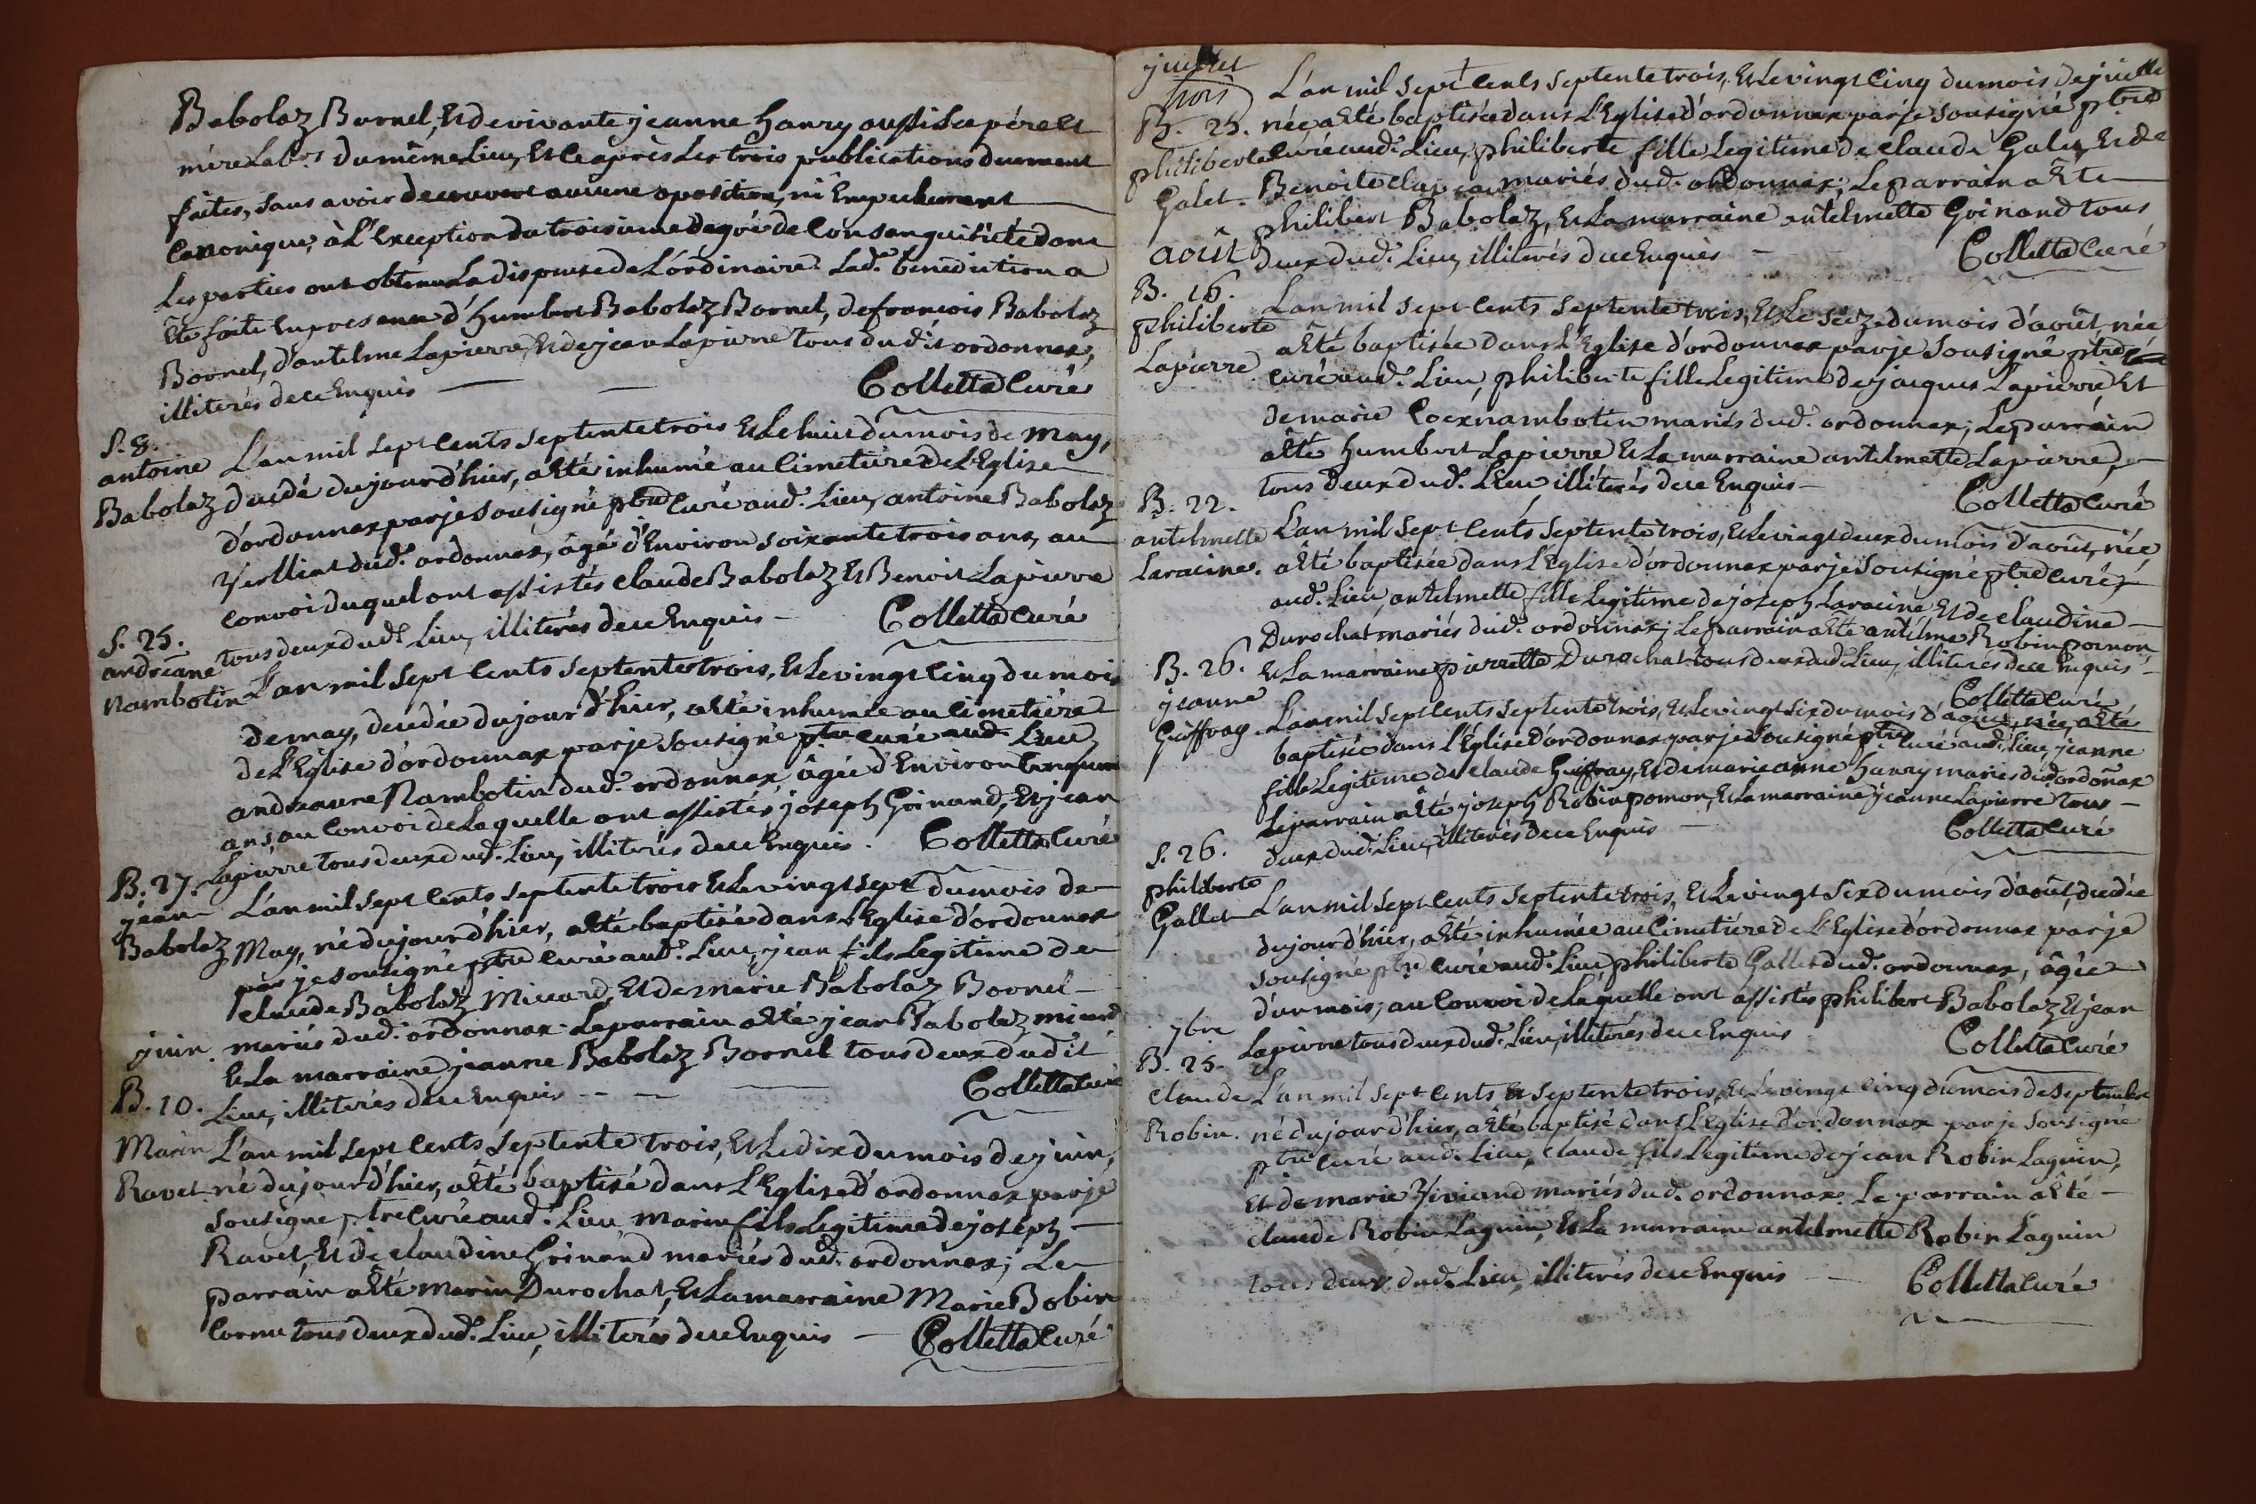 Babolaz Bornel, Et de vivante jeanne hanry aussi Ses pére et
mére Lab.rs du même Lieu, Et ce après Les trois publications duement
faites, Sans avoir decouvert aucune oposition, ni Empechement
Canonique, à L'Exception du troisieme degré de Consanguinité dont
Les parties ont obtenu La dispense de L'ordinaire. Lad.e benediction a
êté faite En presence d'humbert Babolaz Bornel, de françois Babolaz
Bornel, d'antelme Lapierre, Et de jean Lapierre tous du dit ordonnax,
illiterés de ce Enquis — — Colletta Curé
S. 8.
antoine
Babolaz
L'an mil Sept Cents Septente trois Et Le huit du mois de May,
decédé du jour d'hier, a êté inhumé au Cimetiére de L'Eglise
d'ordonnax par je Sousigné ptre Curé aud.t Lieu, antoine Babolaz
dud.t ordonnax, âgé d'Environ Soixante trois ans, au
Convoi duquel ont assistés Claude Babolaz Et Benoit Lapierre
tous deux dud.t Lieu, illiterés de ce Enquis — Colletta Curé
S. 25.
andréane
Nambotin
L'an mil Sept Cents Septente trois, Et Le vingt Cinq du mois
de may, decedée du jour d'hier, a êté inhumée au Cimetiére
de L'Eglise d'ordonnax par je Sousigné ptre Curé aud.t Lieu,
andreanne Nambotin dud.t ordonnax âgée d'Environ
ans, au Convoi de Laquelle ont assistés joseph Goinand, Et jean
Lapierre tous deux dud.t Lieu, illiterés de ce Enquis. Colletta Curé
B. 27.
jean
Babolaz
L'an mil Sept Cents Septente trois Et Le vingt Sept du mois de
May, né du jour d'hier, a êté baptisé dans L'Eglise d'ordonnax
par je Sousigné ptre Curé aud.t Lieu, jean fils Legitime de
Claude Babolaz Micard, Et de Marie Babolaz Bornel —
mariés dud.t ordonnax. Le parrain a êté jean Babolaz micard
Et La marraine jeanne Babolaz Bornel tous deux dudit
Lieu, illiterés de ce Enquis — — — Colletta Curé
juin
B. 10.
Marin
Ravet
L'an mil Sept Cents Septente trois, Et Le dix du mois de juin,
né du jour d'hier, a êté baptisé dans L'Eglise d'ordonnax par je
Sousigné ptre Curé aud.t Lieu Marin fils Legitime de joseph —
Ravet, Et de Claudine Goinand mariés dud.t ordonnax; Le
parrain a êté Marin Durochat, Et La marraine Marie Bobin
Cornu tous deux dud.t Lieu, illiterés de ce Enquis — Colletta Curé
juillet
B. 25.
philiberte
Galet.
L'an mil Sept Cents Septente trois, Et Le vingt Cinq du mois de juillet
née, a êté baptisée dans L'Eglise d'ordonnax par je Sousigné ptre
Curé aud.t Lieu, philiberte fille Legitime de Claude Galet, Et de
Benoite mariés dud.t ordonnax; Le parrain a êté
philibert Babolaz, Et La marraine antelmette Goinand tous
deux dud.t Lieu, illiterés de ce Enquis — Colletta Curé
août
B. 16.
philiberte
Lapierre
L'an mil Sept Cents Septente trois, Et Le Séize du mois d'août, née
a êté baptisée dans L'Eglise d'ordonnax par je Sousigné ptre
Curé aud.t Lieu, philiberte fille Legitime de jacques Lapierre, Et
de marie Coexnambotin mariés dud.t ordonnax; Le parrain
a êté humbert Lapierre Et La marraine antelmette Lapierre, —
tous deux dud.t Lieu illiterés de ce Enquis — Colletta Curé
B. 22.
antelmette
Laracine.
L'an mil Sept Cents Septente trois, Et Le vingt deux du mois d'août, née,
a êté baptisée dans L'Eglise d'ordonnax par je Sousigné ptre Curé
aud.t Lieu, antelmette fille Legitime de joseph Laracine Et de Claudine —
Durochat mariés dud.t ordonnax; Le parrain a êté antelme Robin pomon,
Et La marraine pierrette Durochat tous deux dud.t Lieu, illiterés de ce Enquis —
Colletta Curé
B. 26.
jeanne
Guiffray
L'an mil Sept Cents Septente trois, Et Le vingt Six du mois d'août, née, a êté
baptisée dans L'Eglise d'ordonnax par je Sousigné ptre Curé aud.t Lieu, jeanne
fille Legitime de Claude Guiffray, Et de marie anne hanry mariés dud.t ordonnax
Le parrain a êté joseph Robin pomon, Et La marraine jeanne Lapierre tous —
deux dud.t Lieu, illiterés de ce Enquis — Colletta Curé
S. 26.
philiberte
Gallet
L'an mil Sept Cents Septente trois, Et Le vingt Six du mois d'août, decedée
du jour d'hier, a êté inhumée au Cimetiére de L'Eglise d'ordonnax par je
Sousigné ptre Curé aud.t Lieu, philiberte Gallet dud.t ordonnax, âgée
d'un mois, au Convoi de Laquelle ont assistés philibert Babolaz Et jean
Lapierre tous deux dud.t Lieu, illiterés de ce Enquis Colletta Curé
7bre
B. 25.
Claude
Robin.
L'an mil Sept Cents Et Septente trois, Et Le vingt Cinq du mois de Septembre
né du jour d'hier, a êté baptisé dans L'Eglise d'ordonnax par je Sousigné
ptre Curé aud.t Lieu, Claude fils Legitime de jean Robin Laguin,
Et de marie Viviand mariés dud.t ordonnax. Le parrain a êté —
Claude Robin Laguin, Et La marraine antelmette Robin Laguin
tous deux dud.t Lieu, illiterés de ce Enquis — Colletta Curé